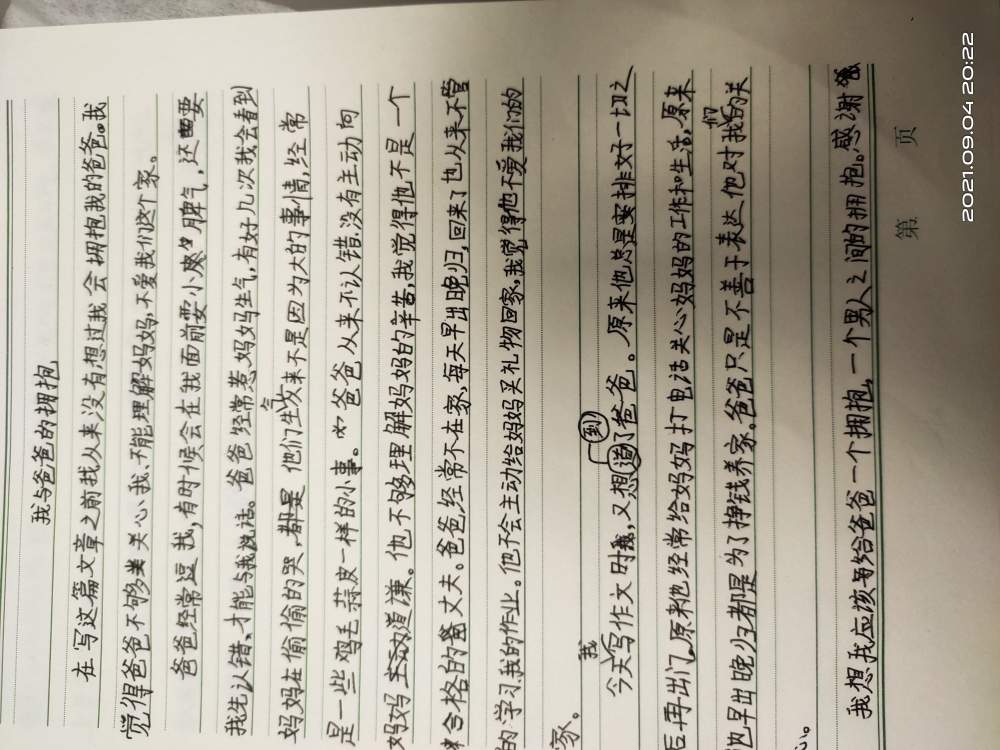 我与爸爸的拥抱
在写这篇文章之前我从来没有想过我会拥抱我的爸爸。我
觉得爸爸不够关心我、不能理解妈妈,不爱我们这个家。
爸爸经常逗我,有时候会在我面前耍小脾气,还要
我先认错、才能与我说话。爸爸经常惹妈妈生气,有好几次我会看到
妈妈在偷偷的哭,都是他们生气来不是因为大的事情,经常
是一些鸡毛蒜皮一样的小事。爸爸从来不认错没有主动向
妈妈主动道谦。他不够理解妈妈的辛苦,我觉得他不是一个
合格的丈夫。爸爸,经常不在家,每天早出晚归,回来了也从来不管
的学习我的作业。他不会主动给妈妈买礼物回家,我觉得他不爱我们的
家。
今天我写作文时,又想到了爸爸。原来他总是安排好一切之
后再出们,原来他经常给妈妈打电话关心妈妈的工作和生活,原来
他早出晚归都是为了挣钱养家。爸爸只是不善于表达他对我们的关
心。
我想我应该给爸爸一个拥抱,一个男人之间的拥抱。感谢
第 页
2021.09.04 20:22